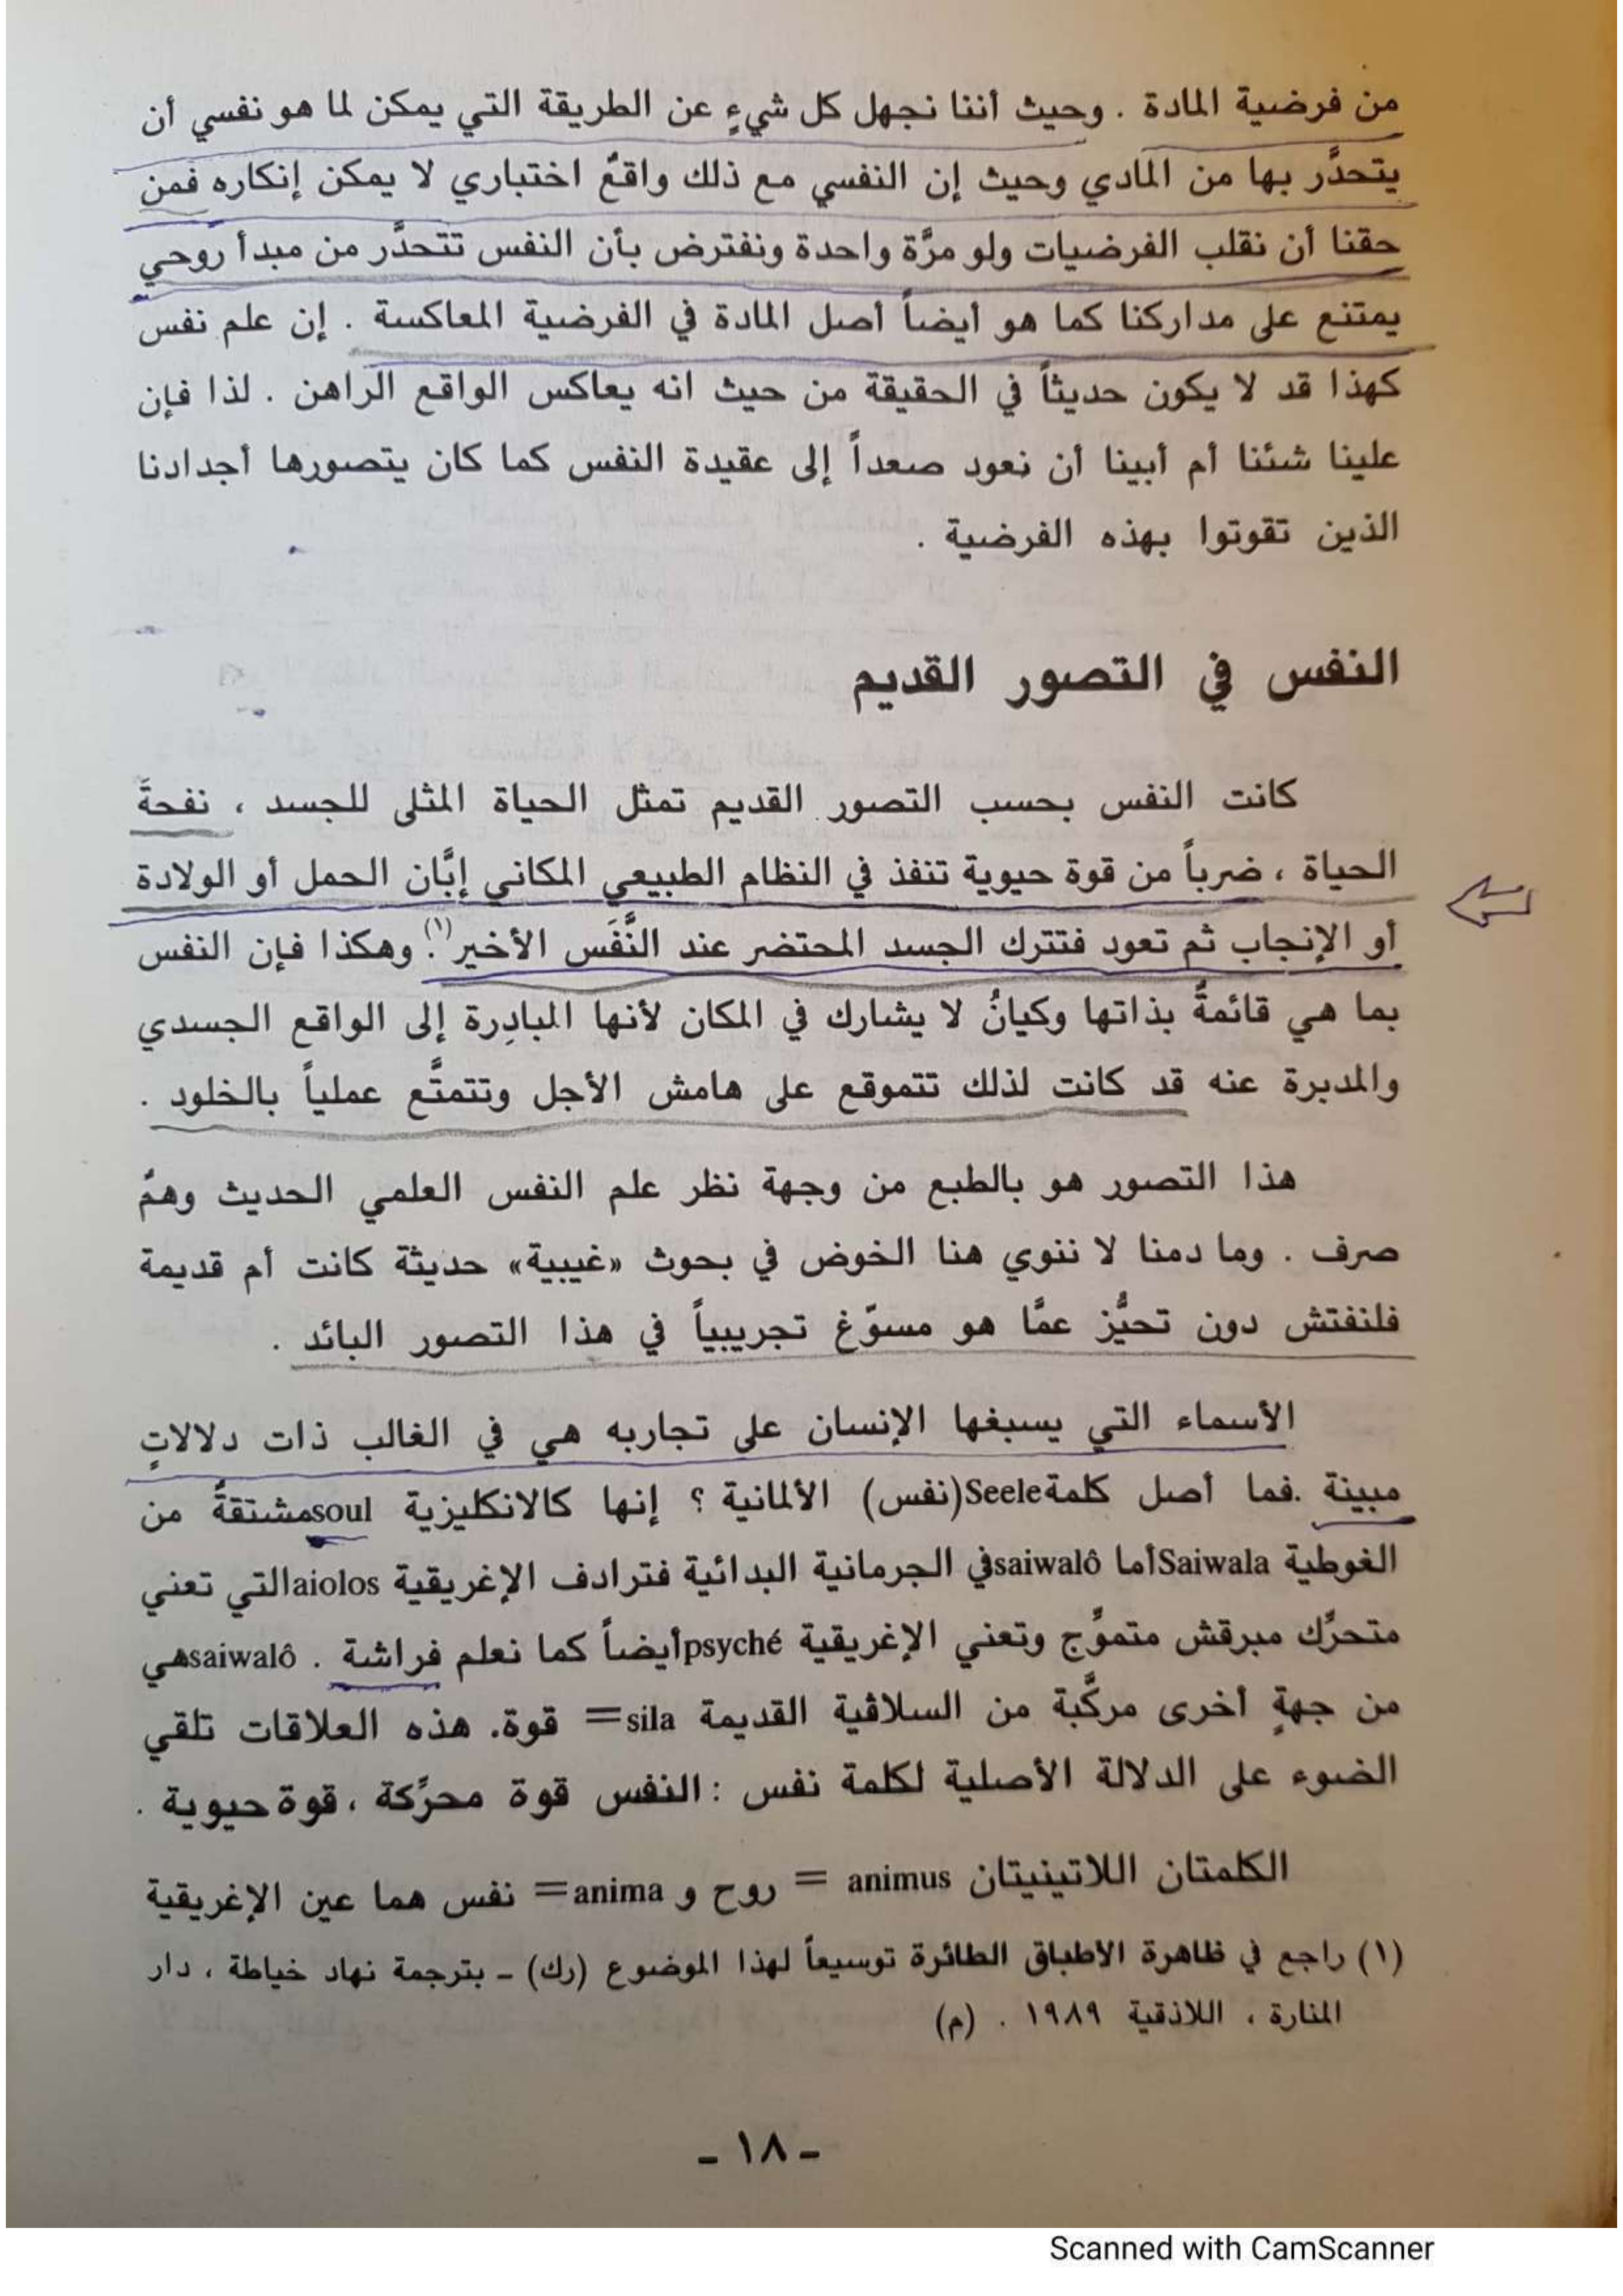 من فرضية المادة . وحيث أننا نجهل كل شيءٍ عن الطريقة التي يمكن لما هو نفسي أن
يتحدَّر بها من المادي وحيث إن النفسي مع ذلك واقعٌ اختباري لا يمكن إنكاره فمن
حقنا أن نقلب الفرضيات ولو مرَّة واحدة ونفترض بأن النفس تتحدَّر من مبدأ روحي
يمتنع على مداركنا كما هو أيضاً أصل المادة في الفرضية المعاكسة . إن علم نفس
كهذا قد لا يكون حديثاً في الحقيقة من حيث انه يعاكس الواقع الراهن . لذا فإن
علينا شئنا أم أبينا أن نعود صعداً إلى عقيدة النفس كما كان يتصورها أجدادنا
الذين تقوتوا بهذه الفرضية .
النفس في التصور القديم
كانت النفس بحسب التصور القديم تمثل الحياة المثلى للجسد ، نفحةَ
الحياة ، ضرباً من قوة حيوية تنفذ في النظام الطبيعي المكاني إبَّان الحمل أو الولادة
أو الإنجاب ثم تعود فتترك الجسد المحتضر عند النَّفَس الأخير(١). وهكذا فإن النفس
بما هي قائمةٌ بذاتها وكيانٌ لا يشارك في المكان لأنها المبادِرة إلى الواقع الجسدي
والمدبرة عنه قد كانت لذلك تتموقع على هامش الأجل وتتمتَّع عملياً بالخلود .
هذا التصور هو بالطبع من وجهة نظر علم النفس العلمي الحديث وهمٌ
صرف . وما دمنا لا ننوي هنا الخوض في بحوث «غيبية» حديثة كانت أم قديمة
فلنفتش دون تحيُّز عمَّا هو مسوّغ تجريبياً في هذا التصور البائد .
الأسماء التي يسبغها الإنسان على تجاربه هي في الغالب ذات دلالاتٍ
مبينة .فما أصل كلمة Seele (نفس) الألمانية ؟ إنها كالانكليزية soul مشتقةٌ من
الغوطية Saiwala أما saiwalô في الجرمانية البدائية فترادف الإغريقية aiolos التي تعني
متحرِّك مبرقش متموِّج وتعني الإغريقية psyché أيضاً كما نعلم فراشة . saiwalô هي
من جهةٍ أخرى مركَّبة من السلاڤية القديمة sila = قوة. هذه العلاقات تلقي
الضوء على الدلالة الأصلية لكلمة نفس : النفس قوة محرِّكة ، قوة حيوية .
الكلمتان اللاتينيتان animus = روح و anima = نفس هما عين الإغريقية
(١) راجع في ظاهرة الاطباق الطائرة توسيعاً لهذا الموضوع (رك) - بترجمة نهاد خياطة ، دار
المنارة ، اللاذقية ١٩٨٩ . (م)
- ١٨ -
Scanned with CamScanner